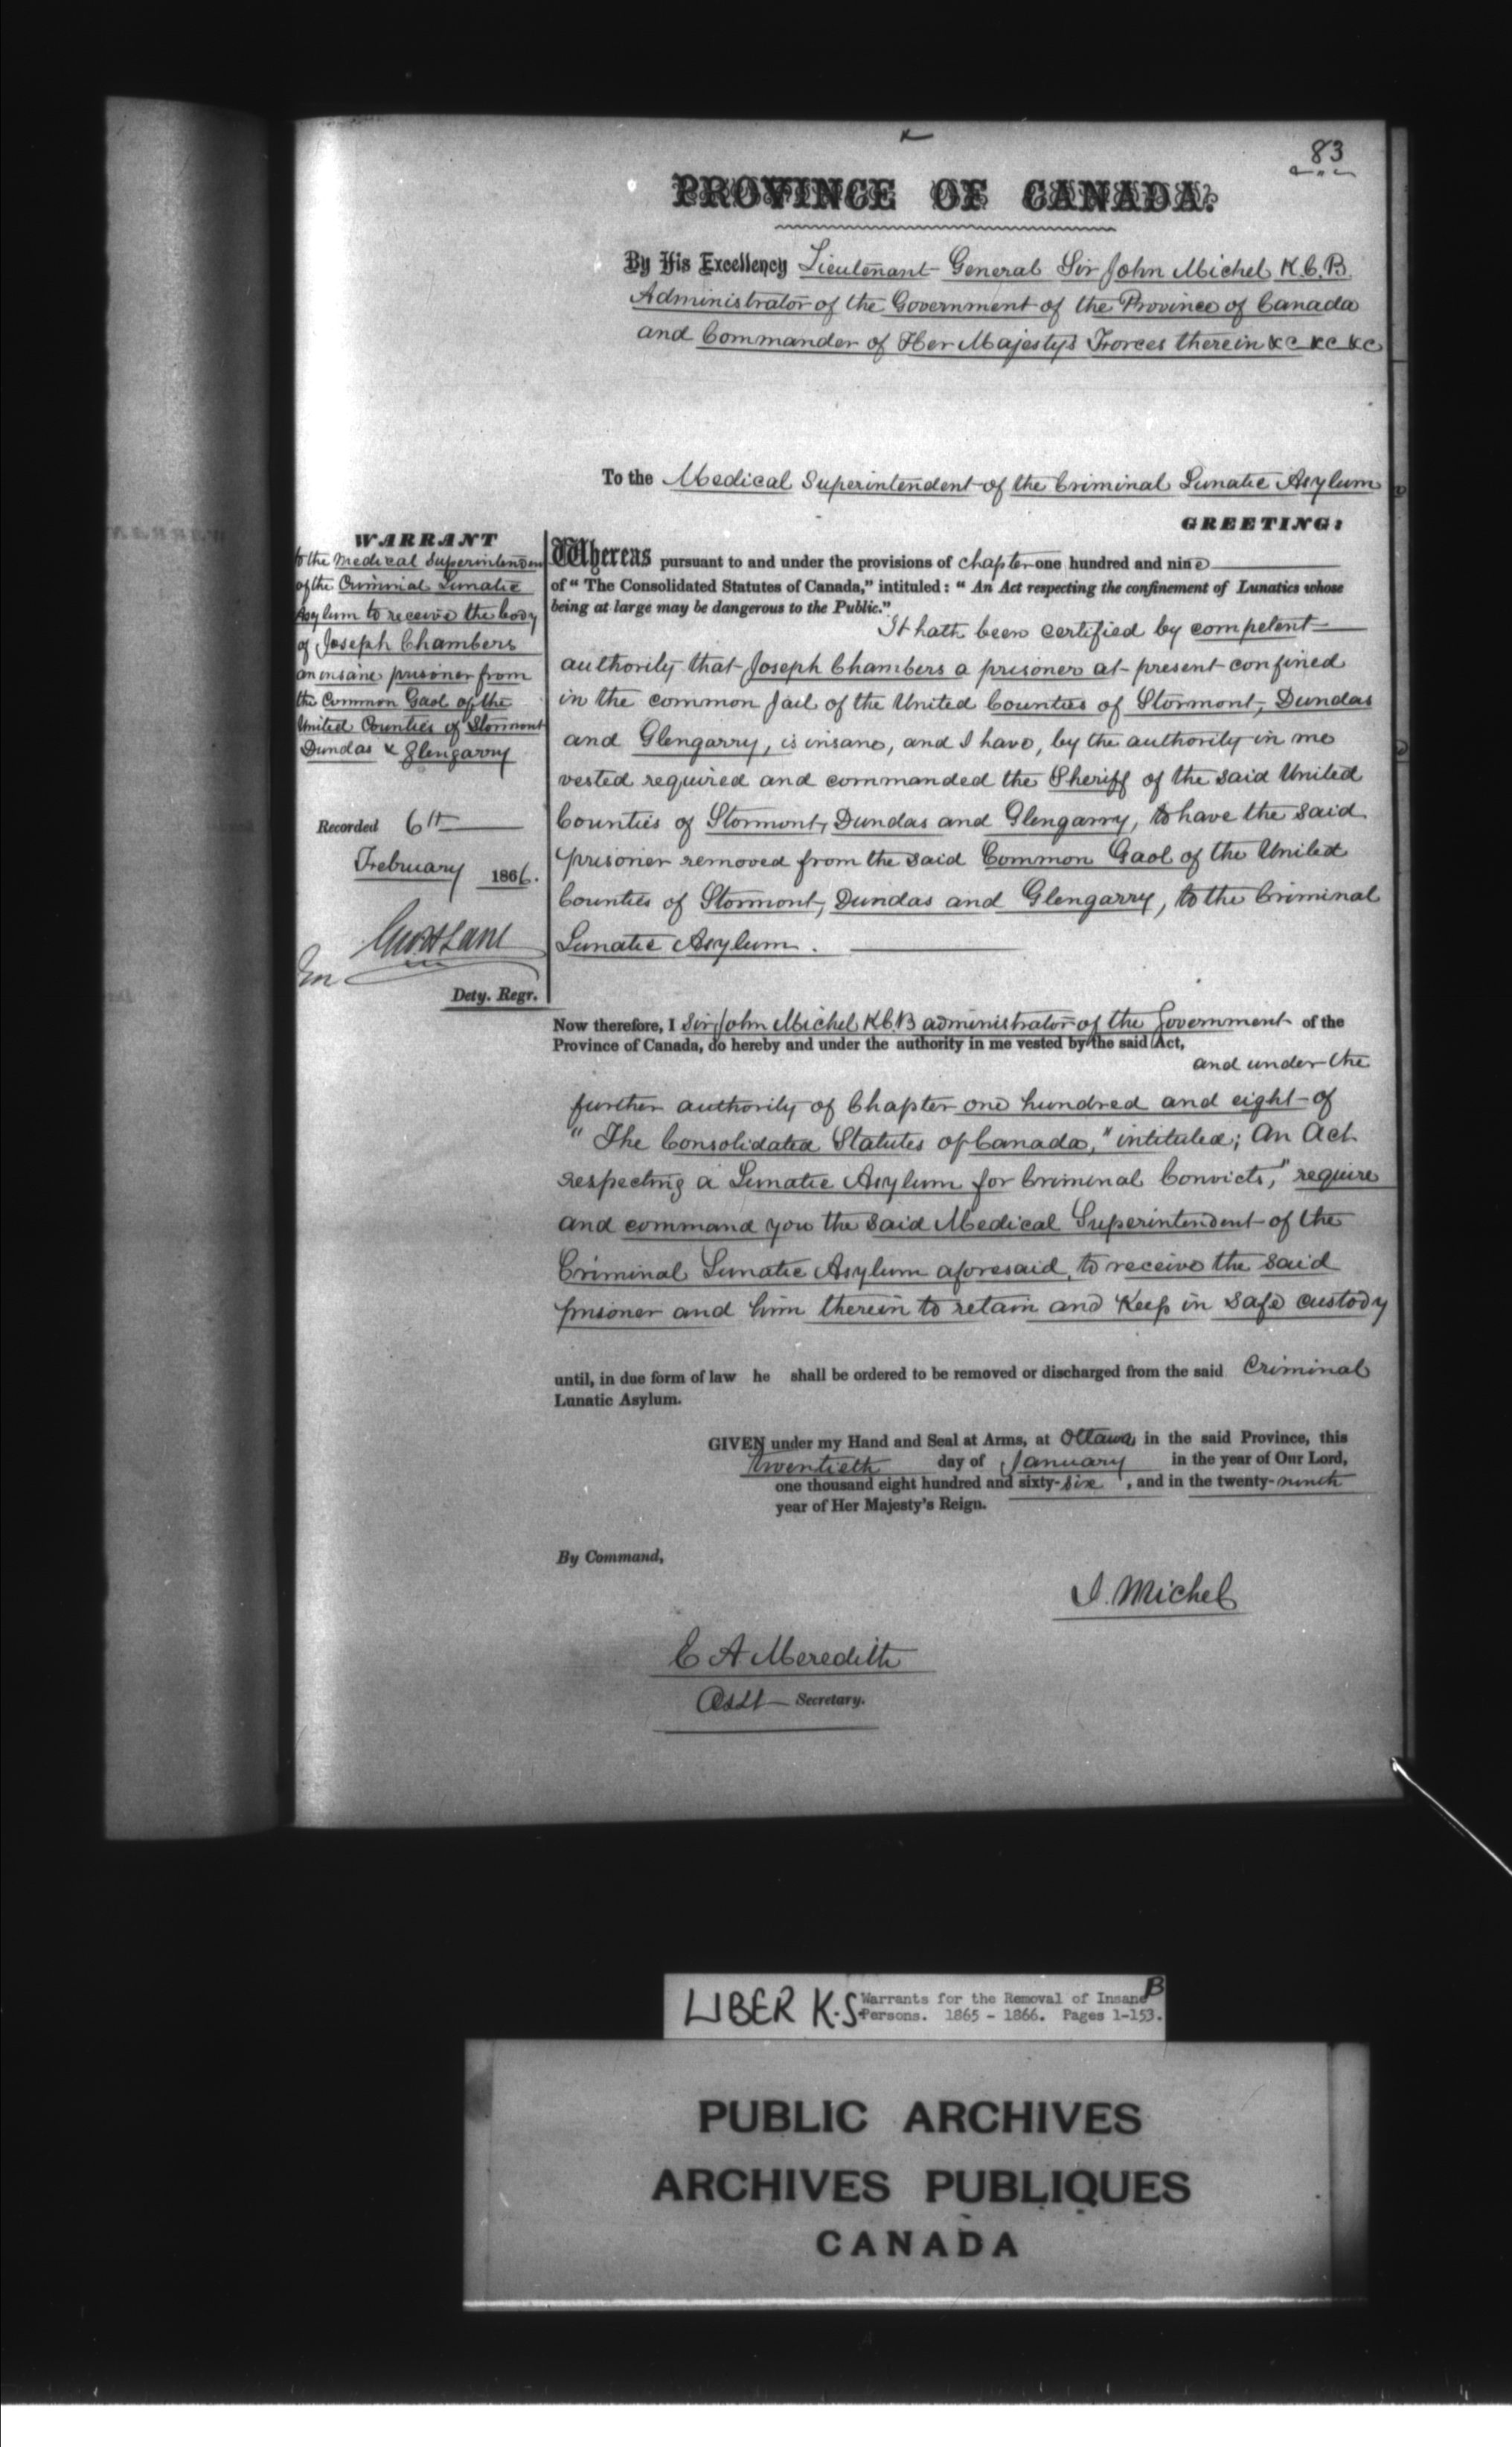 83
PROVINCE OF CANADA.
By His Excellency Lieutenant General Sir John Michel K.C.B.
Administrator of the Government of the Province of Canada
and Commander of Her Majesty's Forces therein &c &c &c
To the Medical Superintendent of the Criminal Lunatic Asylum
GREETING:
WARRANT
to the Medical Superintenden
of the Criminal Lunatic
Asylum to receive the body
of Joseph Chambers
an insane prisoner from
the Common Gaol of the
United Counties of Stormont
Dundas & Glengarry
Recorded 6th
February 1866.
Geo H Lane
Dety. Regr.
Whereas pursuant to and under the provisions of chapter one hundred and nine
of "The Consolidated Statutes of Canada," intituled: "An Act respecting the confinement of Lunatics whose
being at large may be dangerous to the Public."
It hath been certified by competent
authority that Joseph Chambers a prisoner at present confined
in the common Jail of the United Counties of Stormont, Dundas
and Glengarry, is insane, and I have, by the authority in me
vested required and commanded the Sheriff of the said United
Counties of Stormont, Dundas and Glengarry, to have the said
prisoner removed from the said Common Gaol of the United
Counties of Stormont, Dundas and Glengarry, to the Criminal
Lunatic Asylum.
Now therefore, I Sir John Michel K.C.B administrator of the Government of the
Province of Canada, do hereby and under the authority in me vested by the said Act,
and under the
further authority of Chapter one hundred and eight of
"The Consolidated Statutes of Canada," intituled; An Act
respecting a Lunatic Asylum for Criminal Convicts," require
and command you the said Medical Superintendent of the
Criminal Lunatic Asylum aforesaid, to receive the said
prisoner and him therein to retain and keep in safe custody
until, in due form of law he shall be ordered to be removed or discharged from the said Criminal
Lunatic Asylum.
GIVEN under my Hand and Seal at Arms, at Ottawa in the said Province, this
twentieth day of January in the year of Our Lord,
one thousand eight hundred and sixty-six, and in the twenty-ninth
year of Her Majesty's Reign.
By Command,
J. Michel
E A Meredith
Asst Secretary.
LIBER K.S. Warrants for the Removal of Insane B
Persons. 1865 - 1866. Pages 1-153.
PUBLIC ARCHIVES
ARCHIVES PUBLIQUES
CANADA